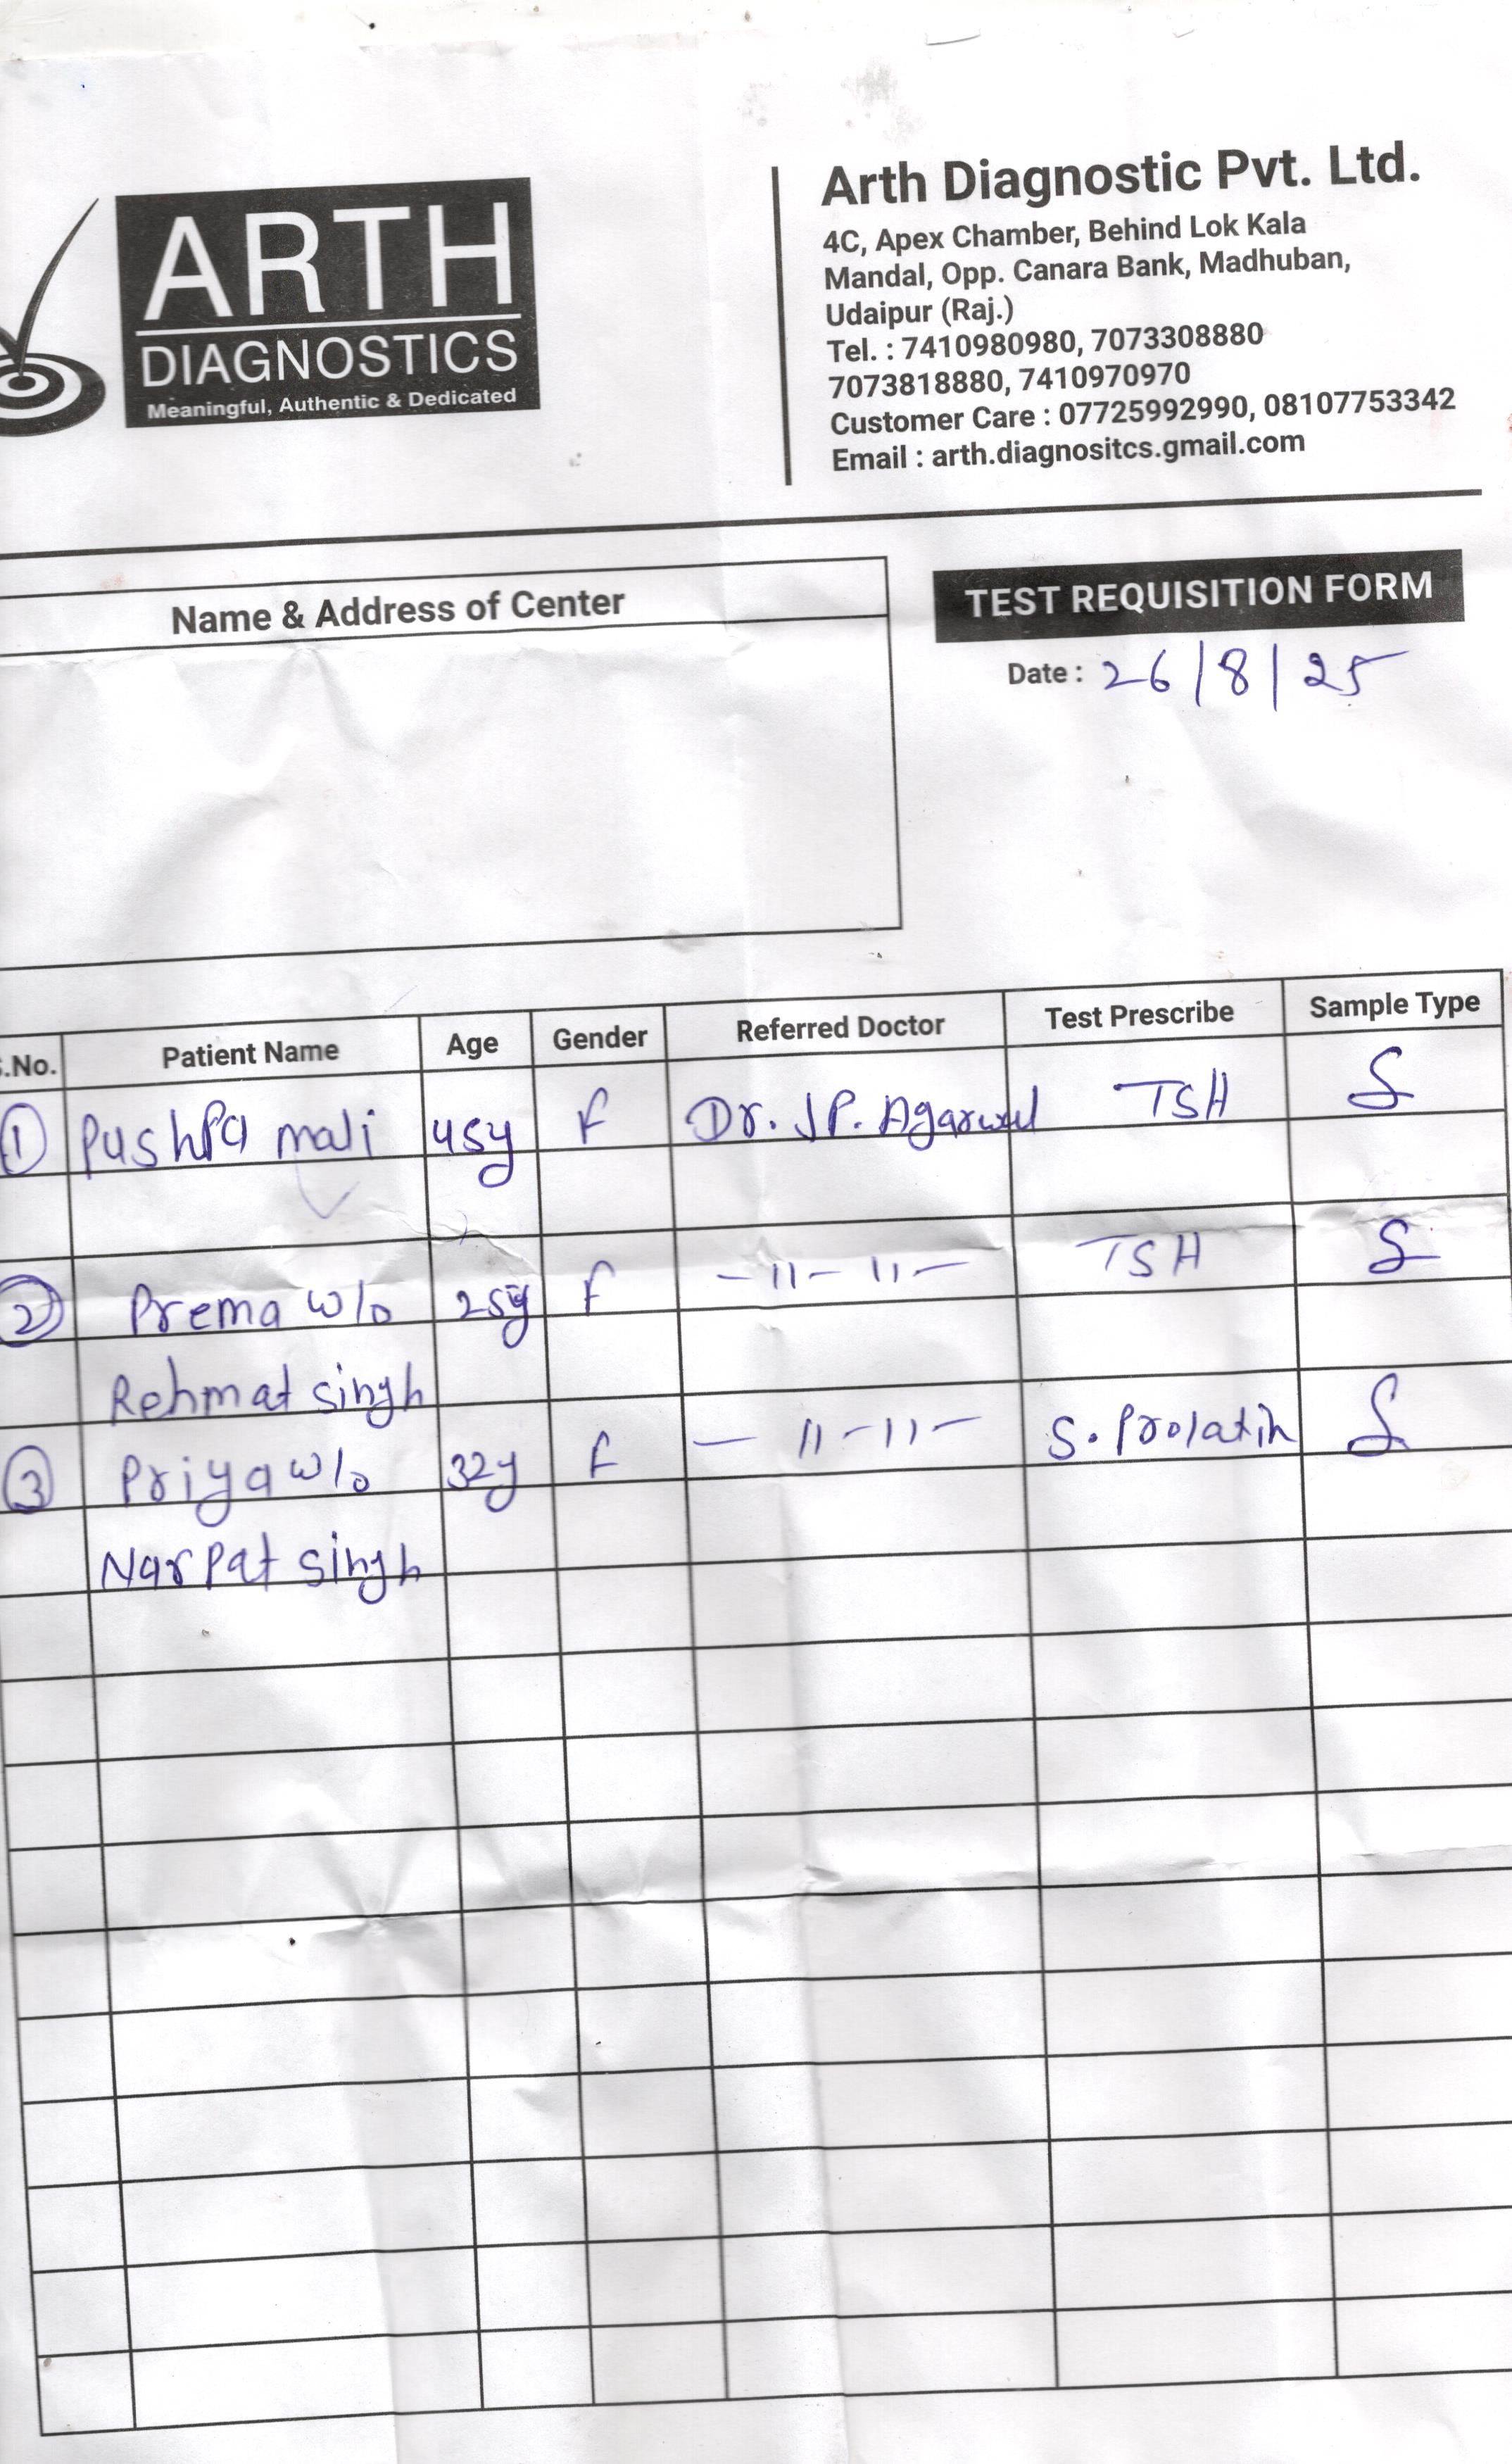 ARTH
DIAGNOSTICS
Meaningful, Authentic & Dedicated
Arth Diagnostic Pvt. Ltd.
4C, Apex Chamber, Behind Lok Kala
Mandal, Opp. Canara Bank, Madhuban,
Udaipur (Raj.)
Tel. : 7410980980, 7073308880
7073818880, 7410970970
Customer Care : 07725992990, 08107753342
Email : arth.diagnositcs.gmail.com
Name & Address of Center
TEST REQUISITION FORM
Date : 26/8/25
S.No. Patient Name Age Gender Referred Doctor Test Prescribe Sample Type
1 Pushpa mali 45y F Dr. JP. Agarwal TSH S
2 Prema w/o 25y F -11-11- TSH S
Rehmat singh
3 Priya w/o 32y F -11-11- S. Prolatin S
Narpat singh